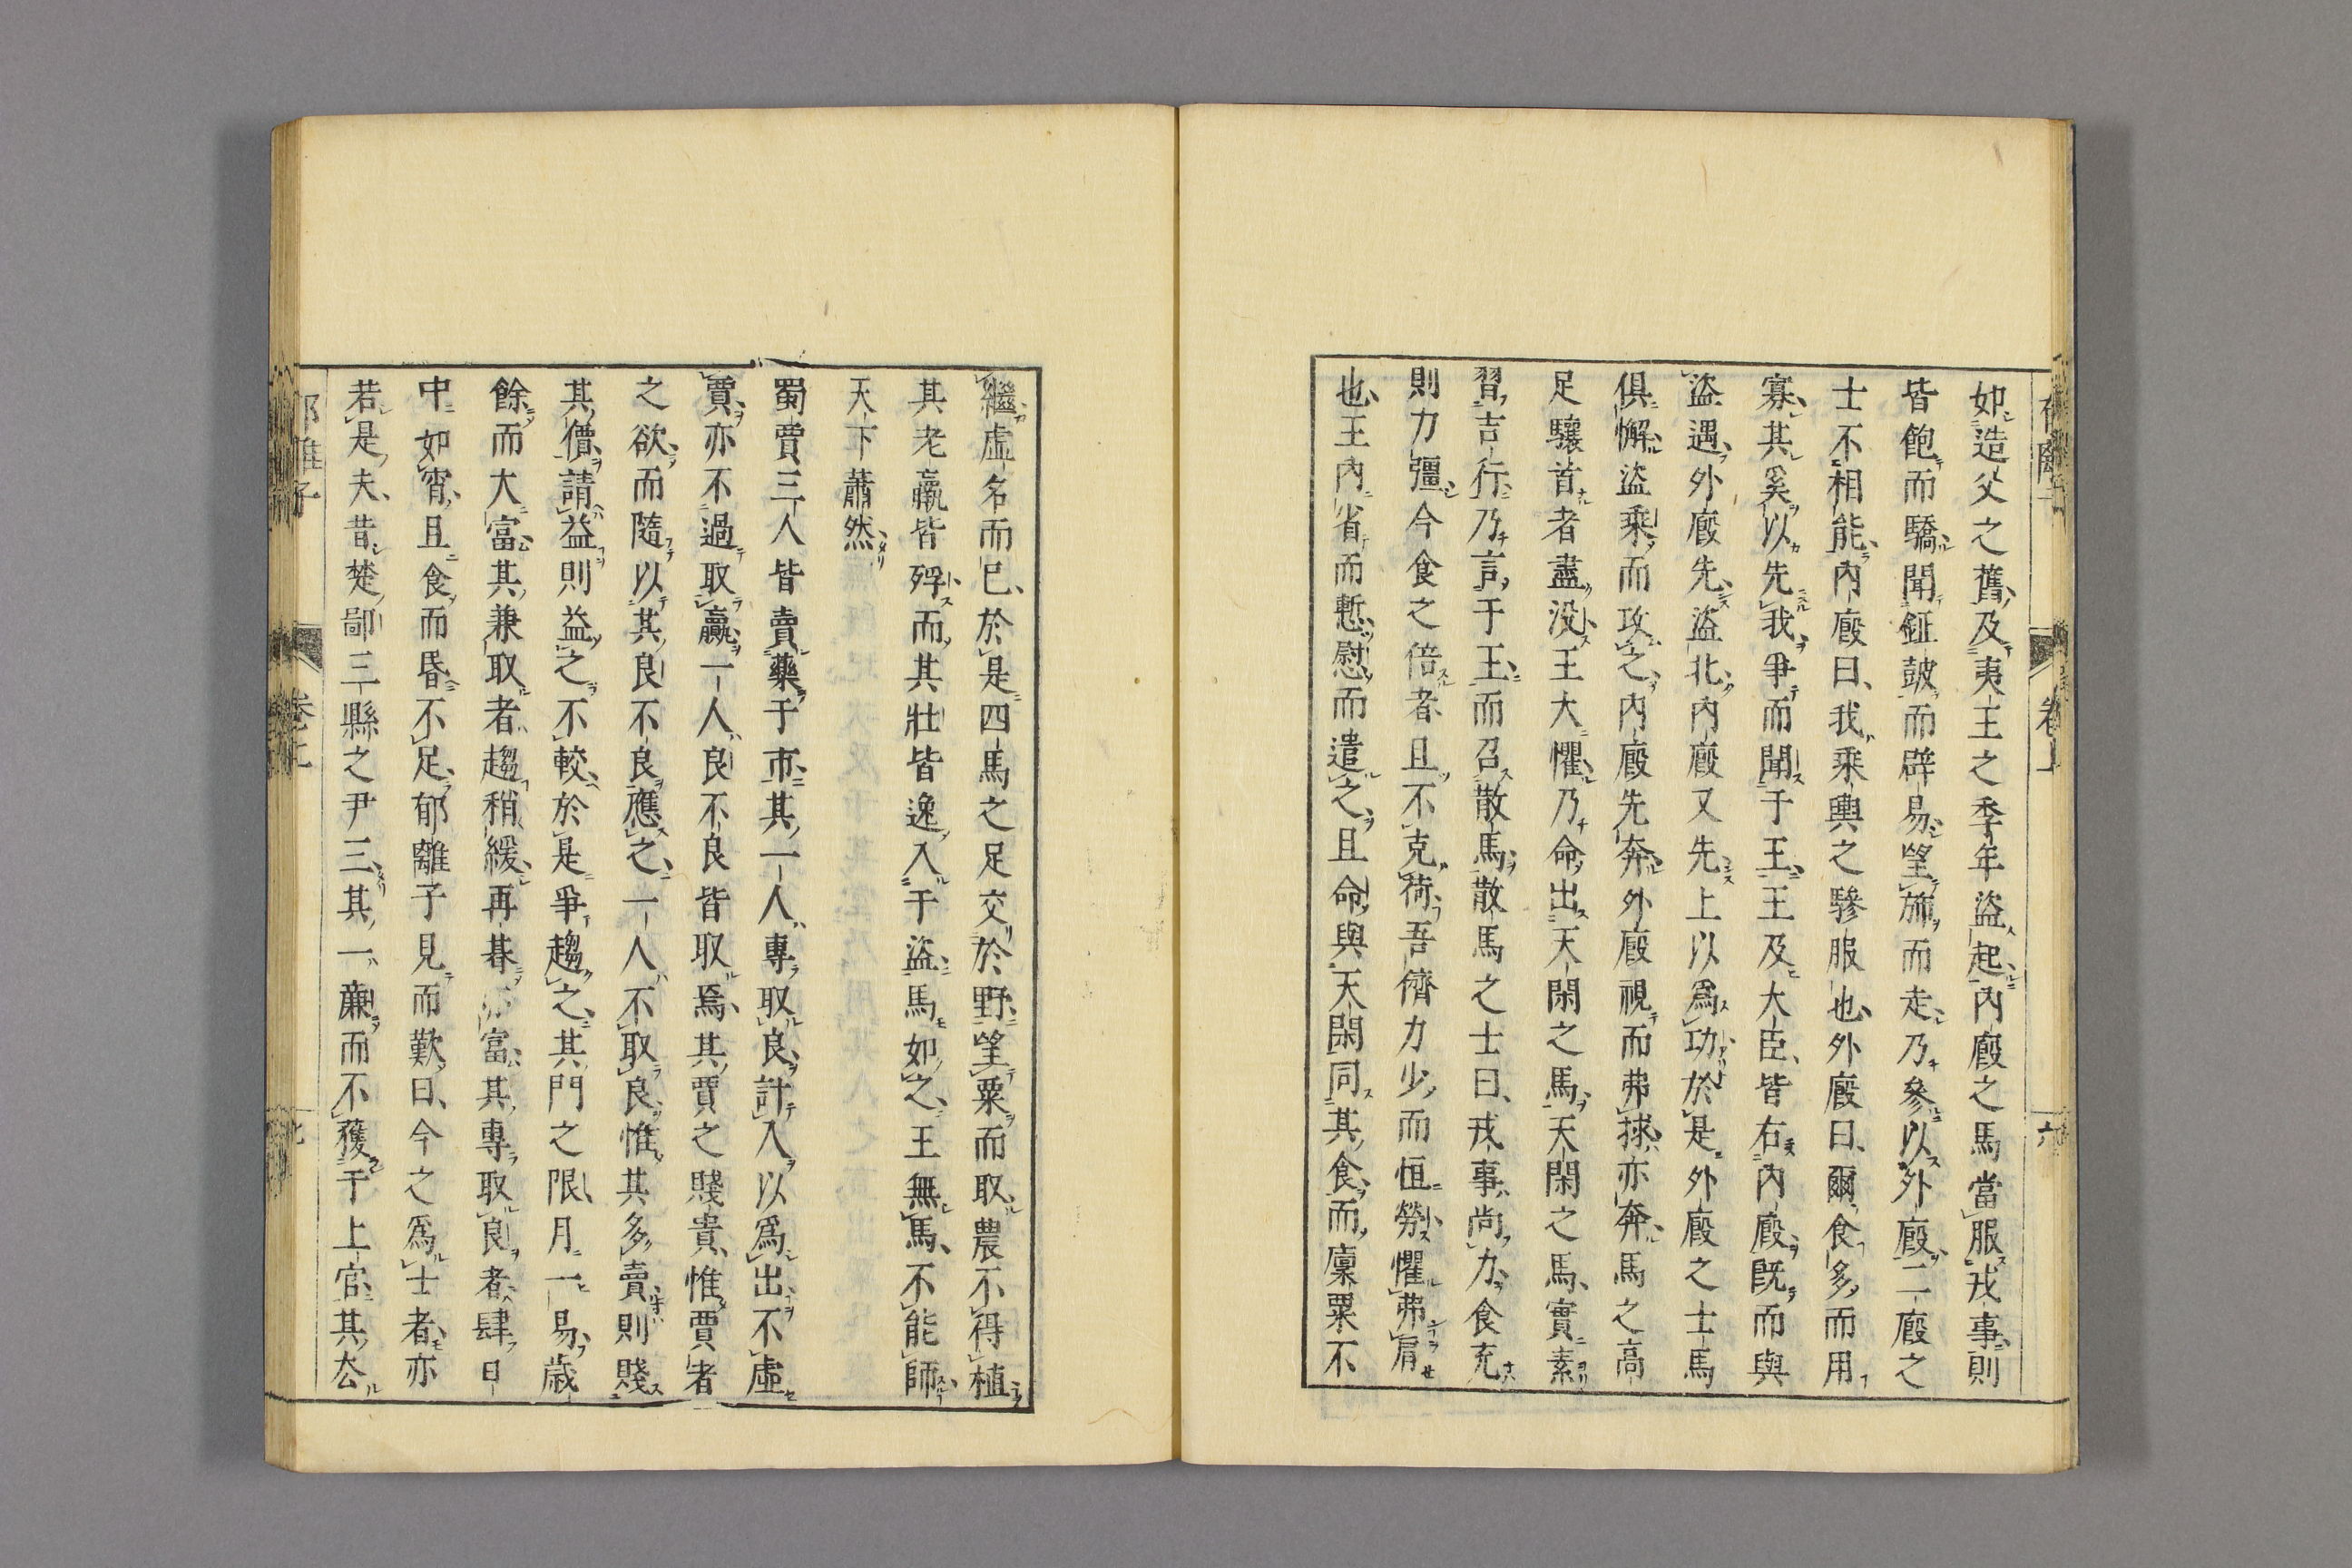 如造父之舊及夷王之季年盜起內廄之馬當服戎事則
皆飽而驕聞鉦鼓而辟易望旆而走乃參以外廄二廄之
士不相能內廄曰我乘輿之驂服也外廄曰爾食多而用
寡其奚以先我爭而聞于王王及大臣皆右內廄既而與
盜遇外廄先盜北內廄又先上以爲功於是外廄之士馬
俱懈盜乘而攻之內廄先奔外廄視而弗救亦奔馬之高
足驤首者盡没王大懼乃命出天閑之馬天閑之馬實素
習吉行乃言于王而召散馬散馬之士曰戎事尚力食充
則力彊今食之倍者且不克荷吾儕力少而恒勞懼弗肩
也王內省而慙慰而遣之且命與天閑同其食而廩粟不
卷上
六
繼虛名而已於是四馬之足交於野望粟而取農不得植
其老羸皆殍而其壯皆逸入于盜馬如之王無馬不能師
天下蕭然
蜀賈三人皆賣藥于市其一人專取良計入以爲出不虛
賈亦不過取贏一人良不良皆取焉其賈之賤貴惟買者
之欲而隨以其良不良應之一人不取良惟其多賣則賤
其價請益則益之不較於是爭趨之其門之限月一易歲
餘而大富其兼取者趨稍緩再朞富其專取良者肆日
中如宵旦食而昏不足郁離子見而歎曰今之爲士者亦
若是夫昔楚鄙三縣之尹三其一廉而不獲于上官其厺
郁離子
卷上